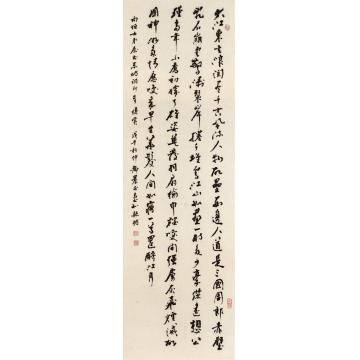 大江東去浪淘盡千古風流人物故壘西邊人道是三國周郎赤壁
亂石崩雲驚濤裂岸捲起千堆雪江山如畫一時多少豪傑遙想公
瑾當年小喬初嫁了雄姿英發羽扇綸巾談笑間強虜灰飛煙滅故
國神游多情應笑我早生華髮人間如一尊還酹江月
東坡詞 戊午